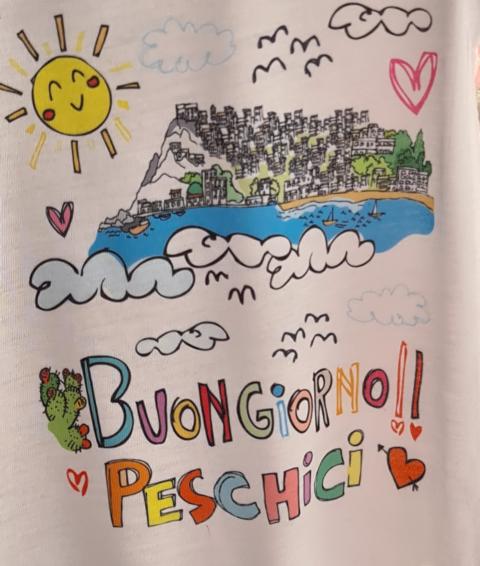 BUONGiORNO!!
PESCHiCi